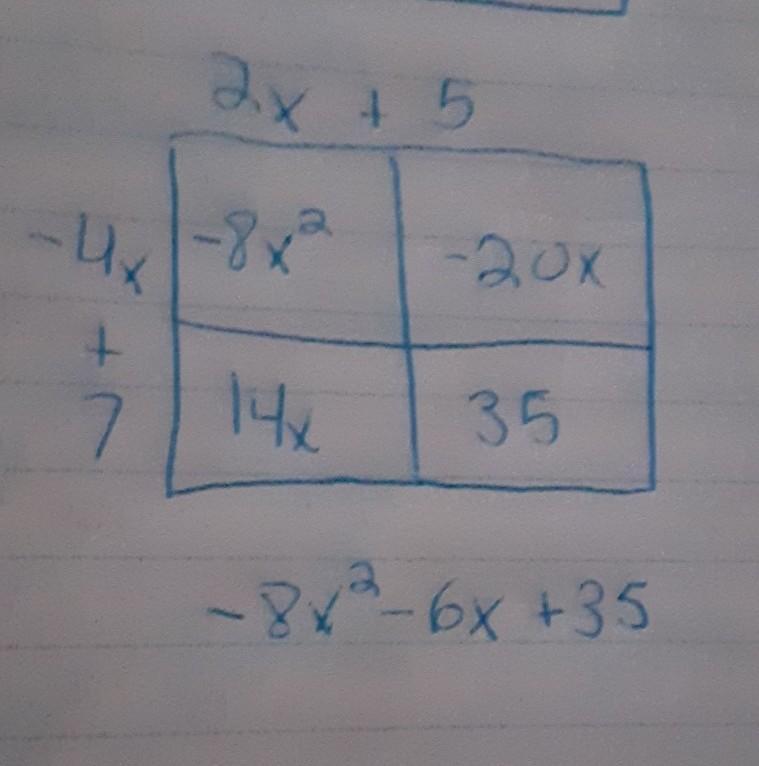 2x + 5
-4x -8x² -20x
+
7 14x 35
-8x²-6x +35